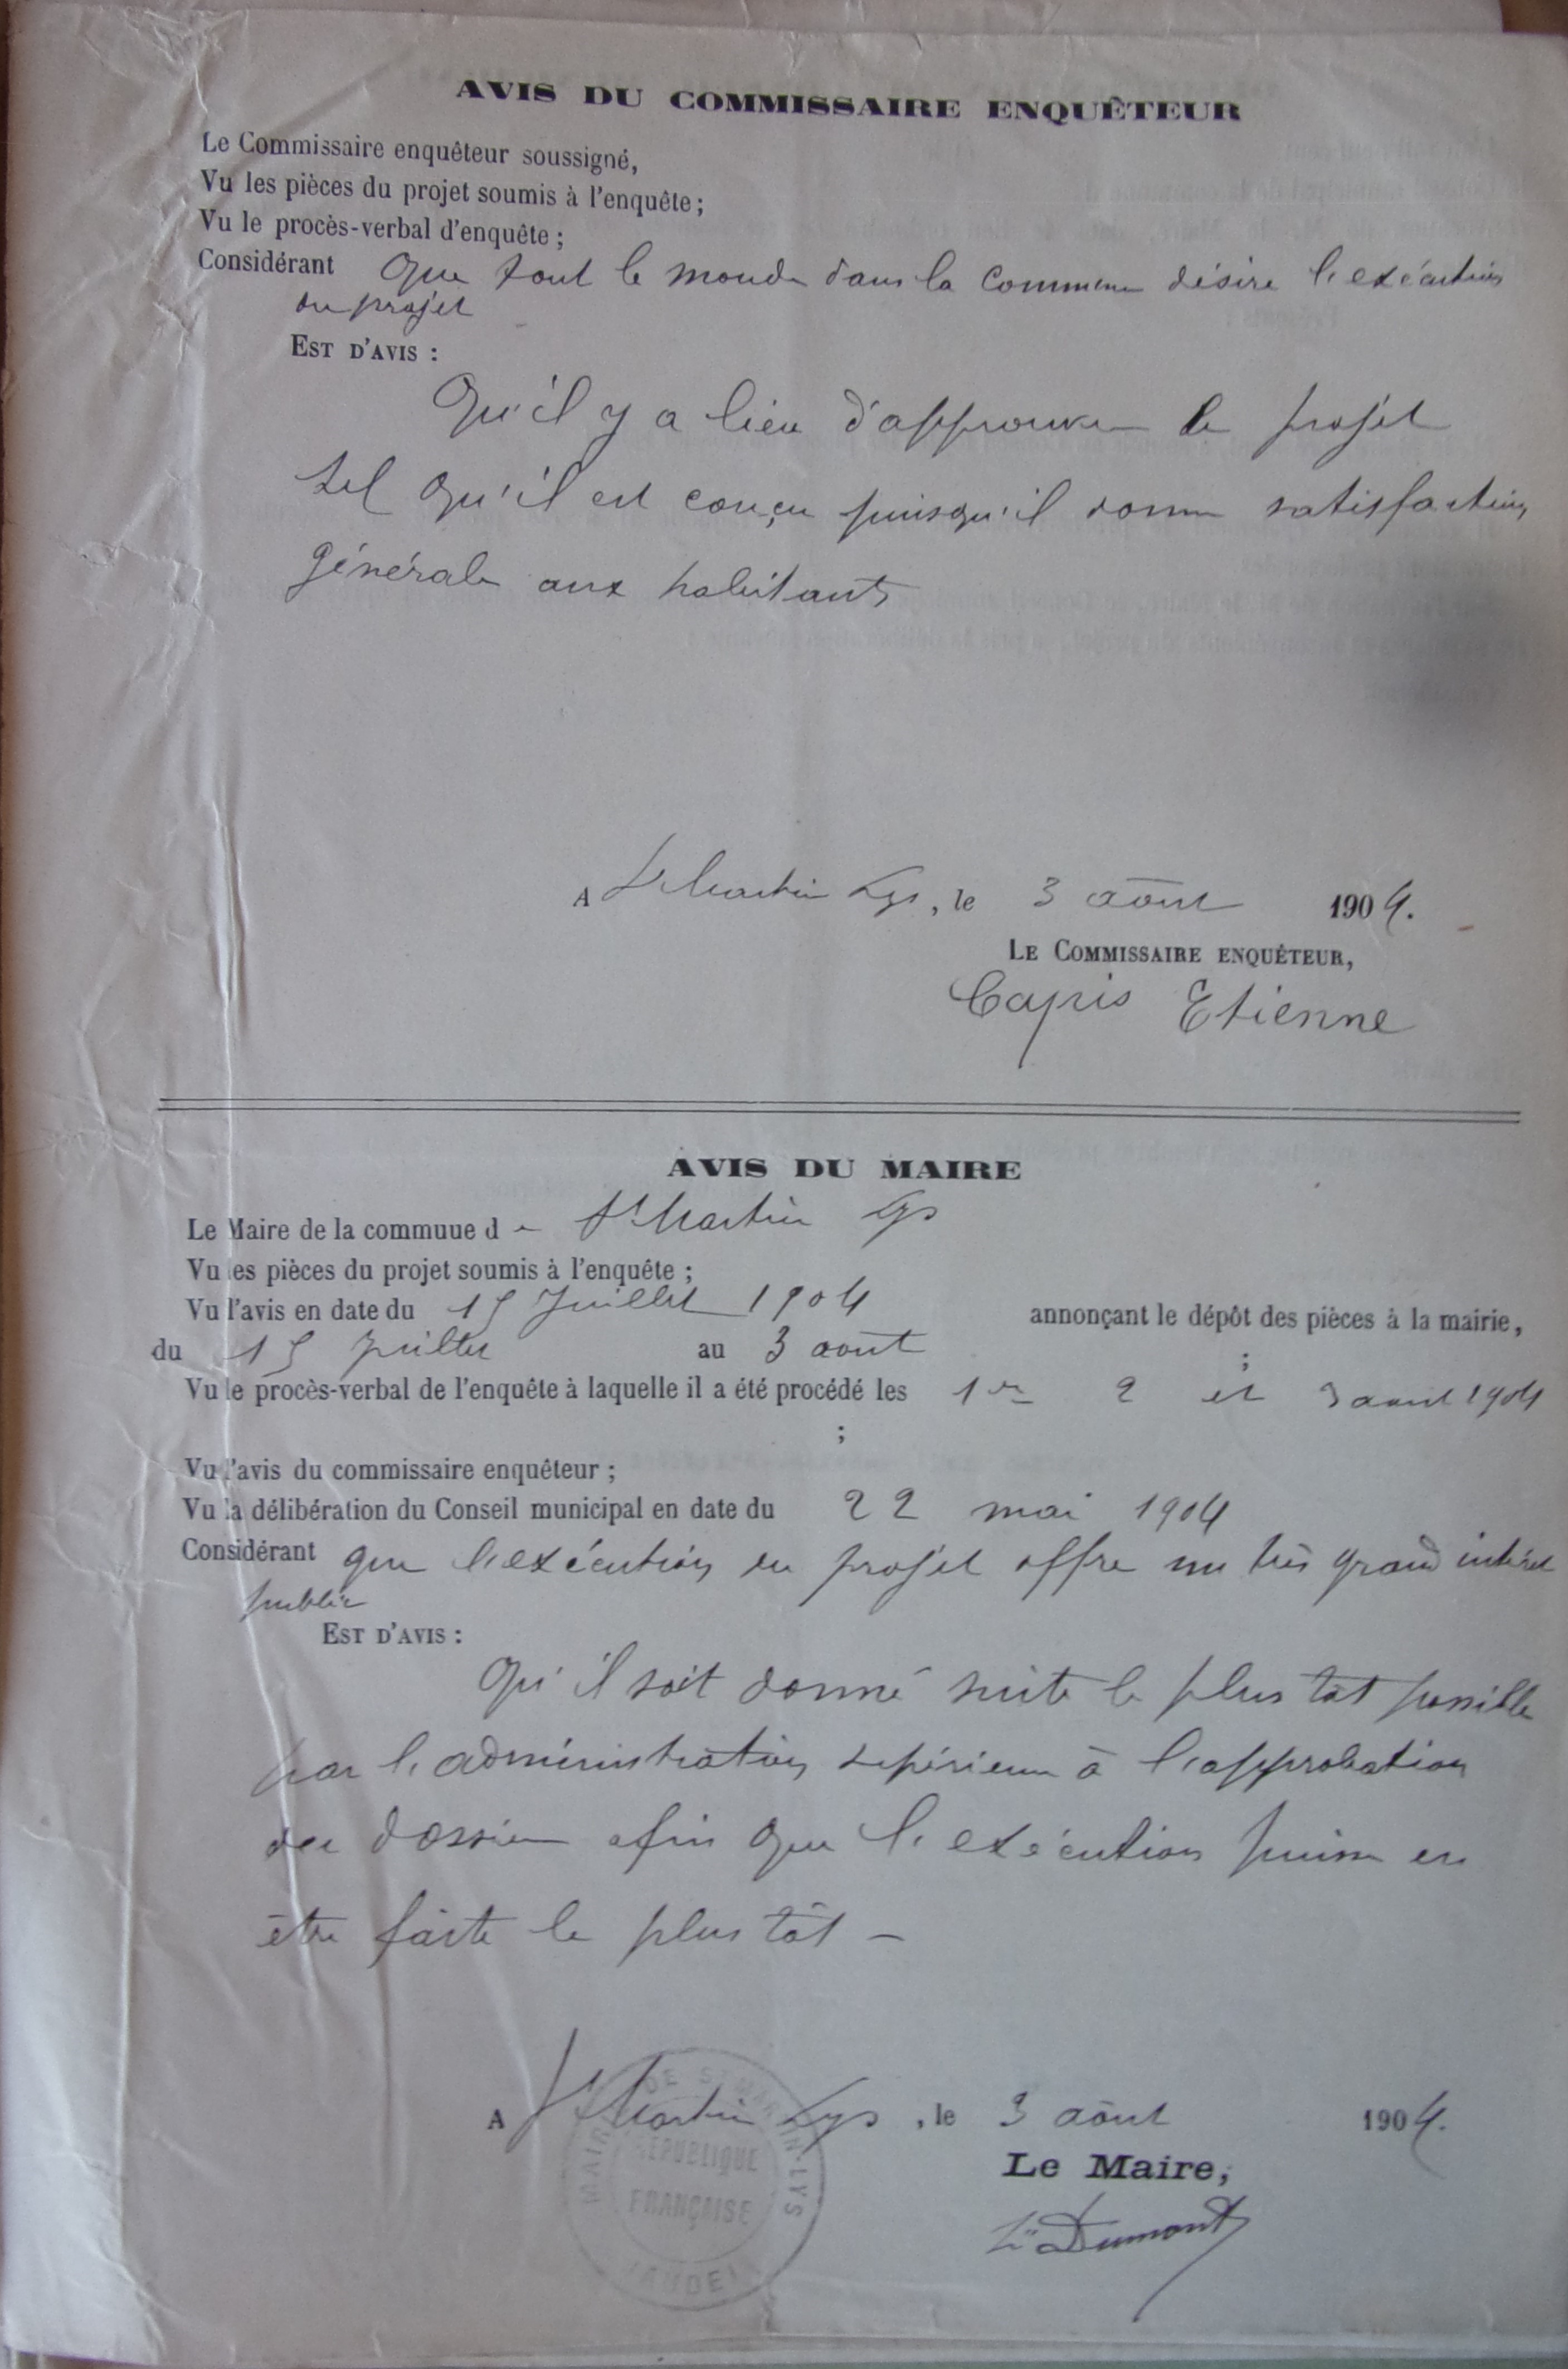 AVIS DU COMMISSAIRE ENQUÊTEUR
Le Commissaire enquêteur soussigné,
Vu les pièces du projet soumis à l'enquête ;
Vu le procès-verbal d'enquête ;
Considérant que tout le monde dans la Commune désire l'exécution
du projet
EST D'AVIS :
Qu'il y a lieu d'approuver le projet
tel qu'il est conçu puisqu'il donne satisfaction
générale aux habitants
A St Martin Lys, le 3 août 1904.
LE COMMISSAIRE ENQUÊTEUR,
Capis Etienne
AVIS DU MAIRE
Le Maire de la commuue de St Martin Lys
Vu les pièces du projet soumis à l'enquête ;
Vu l'avis en date du 15 Juillet 1904 annonçant le dépôt des pièces à la mairie,
du 15 Juillet au 3 août ;
Vu le procès-verbal de l'enquête à laquelle il a été procédé les 1er 2 et 3 aout 1904
;
Vu l'avis du commissaire enquêteur ;
Vu la délibération du Conseil municipal en date du 22 mai 1904
Considérant que l'exécution du projet offre un très grand intérêt
public
EST D'AVIS :
Qu'il soit donné suite le plus tôt possible
par l'administration supérieure à l'approbation
du dossier afin que l'exécution puisse en
être faite le plus tôt –
A St Martin Lys, le 3 août 1904.
MAIRIE DE ST MARTIN-LYS
RÉPUBLIQUE
FRANÇAISE
(AUDE)
Le Maire,
Dumont